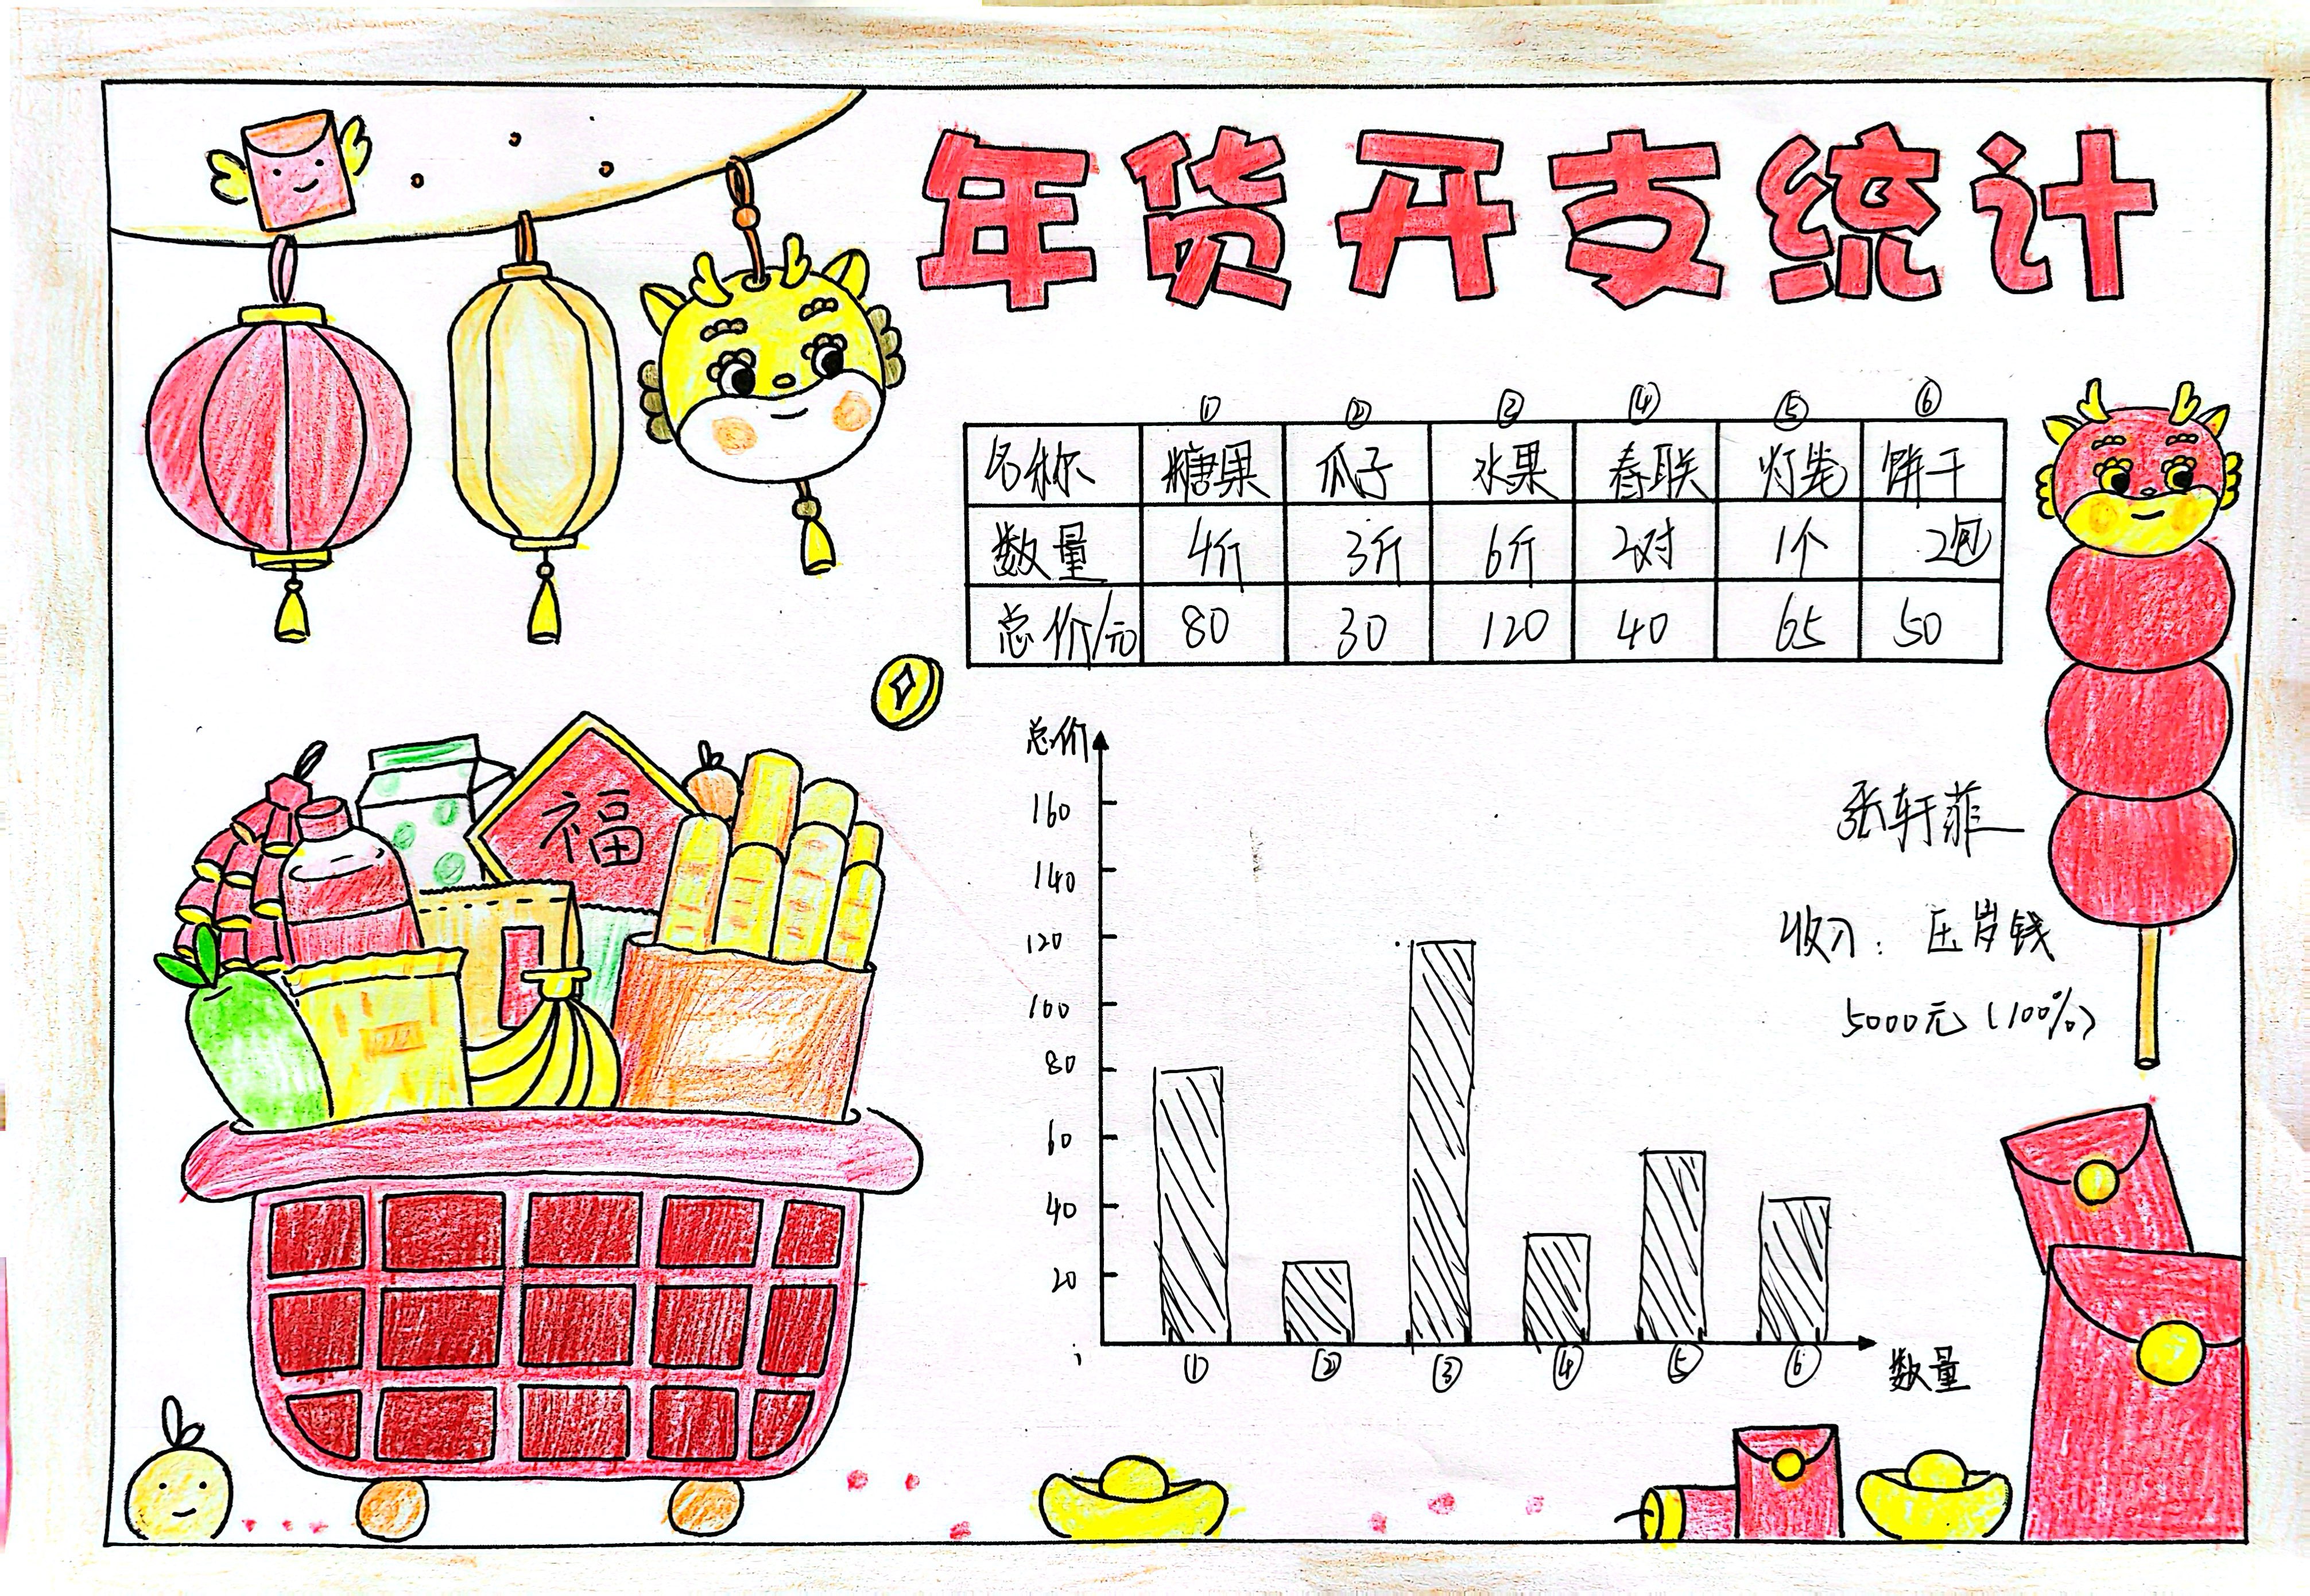 年货开支统计
① ② ③ ④ ⑤ ⑥
名称 糖果 瓜子 水果 春联 灯笼 饼干
数量 4斤 3斤 6斤 2对 1个 2包
总价/元 80 30 120 40 65 50
福
总价
160
140
120
100
80
60
40
20
① ② ③ ④ ⑤ ⑥
数量
张轩菲
收入：压岁钱
5000元（100%）